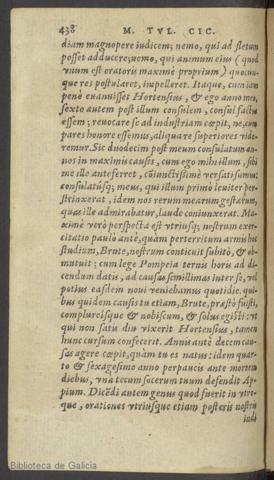 438 M. TVL. CIC.
diam magnopere iudicem; nemo, qui ad fletum
posset adducere; nemo, qui animum eius (quod
vnum est oratoris maximè proprium) quocun-
que res postularet, inpelleret. Itaque, cum iam
penè euanuisset Hortensius, & ego anno meo,
sexto autem post illum consulem, consul factus
essem; reuocare se ad industriam cœpit, ne, cum
pares honore essemus, aliqua re superiores vide-
remur. Sic duodecim post meum consulatum an-
nos in maximis causis, cum ego mihi illum, sibi
me ille anteferret, coniunctissimè versati sumus;
consulatúsq; meus, qui illum primò leuiter per-
strinxerat, idem nos rerum mearum gestarum,
quas ille admirabatur, laude coniunxerat. Ma-
ximè verò perspecta est vtriusq; nostrum exer-
citatio paulò antè, quàm perterritum armis hoc
studium, Brute, nostrum conticuit subitò, & ob-
mutuit: cum lege Pompeia ternis horis ad di-
cendum datis, ad causas simillimas inter se, vel
potius easdem noui veniebamus quotidie. qui-
bus quidem causis tu etiam, Brute, præstò fuisti,
complureísque & nobiscum, & solus egisti: vt
qui non satis diu vixerit Hortensius, tamen
hunc cursum confecerit. Annis antè decem cau-
sas agere cœpit, quàm tu es natus: idem quar-
to & sexagesimo anno perpaucis ante mortem
diebus, vnà tecum socerum tuum defendit Ap-
pium. Dicēdi autem genus quod fuerit in vtro-
que, orationes vtriusque etiam posteris nostris
indi
Biblioteca de Galicia